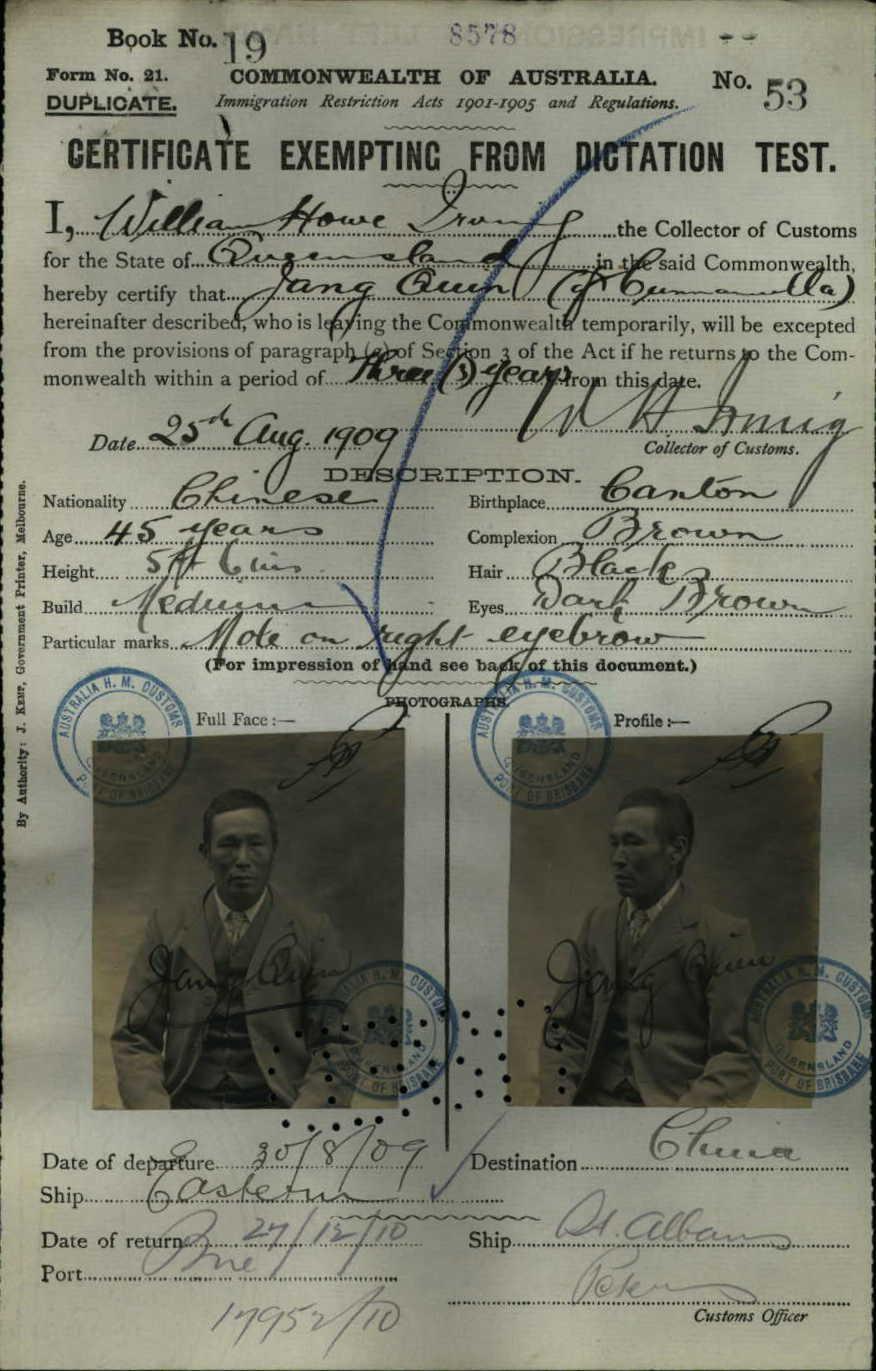 Book No. 19 8578
Form No. 21. COMMONWEALTH OF AUSTRALIA. No. 53
DUPLICATE. Immigration Restriction Acts 1901-1905 and Regulations.
CERTIFICATE EXEMPTING FROM DICTATION TEST.
I, William Howe Irving the Collector of Customs
for the State of Queensland in the said Commonwealth,
hereby certify that Jang Quin (of Cunnamulla)
hereinafter described, who is leaving the Commonwealth temporarily, will be excepted
from the provisions of paragraph (a) of Section 3 of the Act if he returns to the Com-
monwealth within a period of Three (3) years from this date.
Date 25th Aug. 1909 W H Irving
Collector of Customs.
DESCRIPTION.
Nationality Chinese Birthplace Canton
Age 45 years Complexion Brown
Height 5 ft 6 ins Hair Black
Build Medium Eyes Dark Brown
Particular marks Mole on right eyebrow
(For impression of hand see back of this document.)
PHOTOGRAPHS.
Full Face :— Profile :—
AUSTRALIA H. M. CUSTOMS QUEENSLAND PORT OF BRISBANE
AUSTRALIA H. M. CUSTOMS QUEENSLAND PORT OF BRISBANE
Jang Quin Jang Quin
AUSTRALIA H. M. CUSTOMS QUEENSLAND PORT OF BRISBANE
AUSTRALIA H. M. CUSTOMS QUEENSLAND PORT OF BRISBANE
Date of departure 30/8/09 Destination China
Ship Eastern
Date of return 27/12/10 Ship St. Albans
Port Bne
Customs Officer
17952/10
By Authority: J. Kemp, Government Printer, Melbourne.